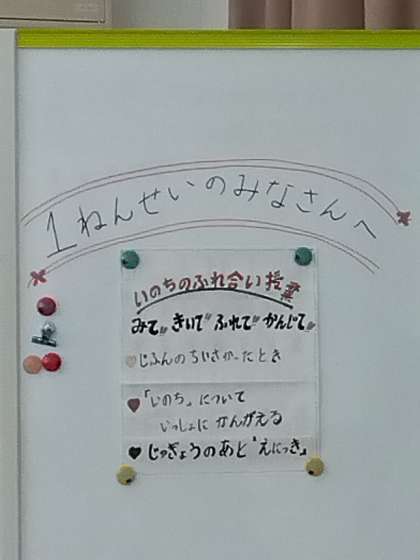 1ねんせいのみなさんへ
いのちのふれ合い授業
みて〃きいて〃ふれて〃かんじて〃
じぶんのちいさかったとき
「いのち」について
いっしょに かんがえる
じゅぎょうのあと"えにっき"